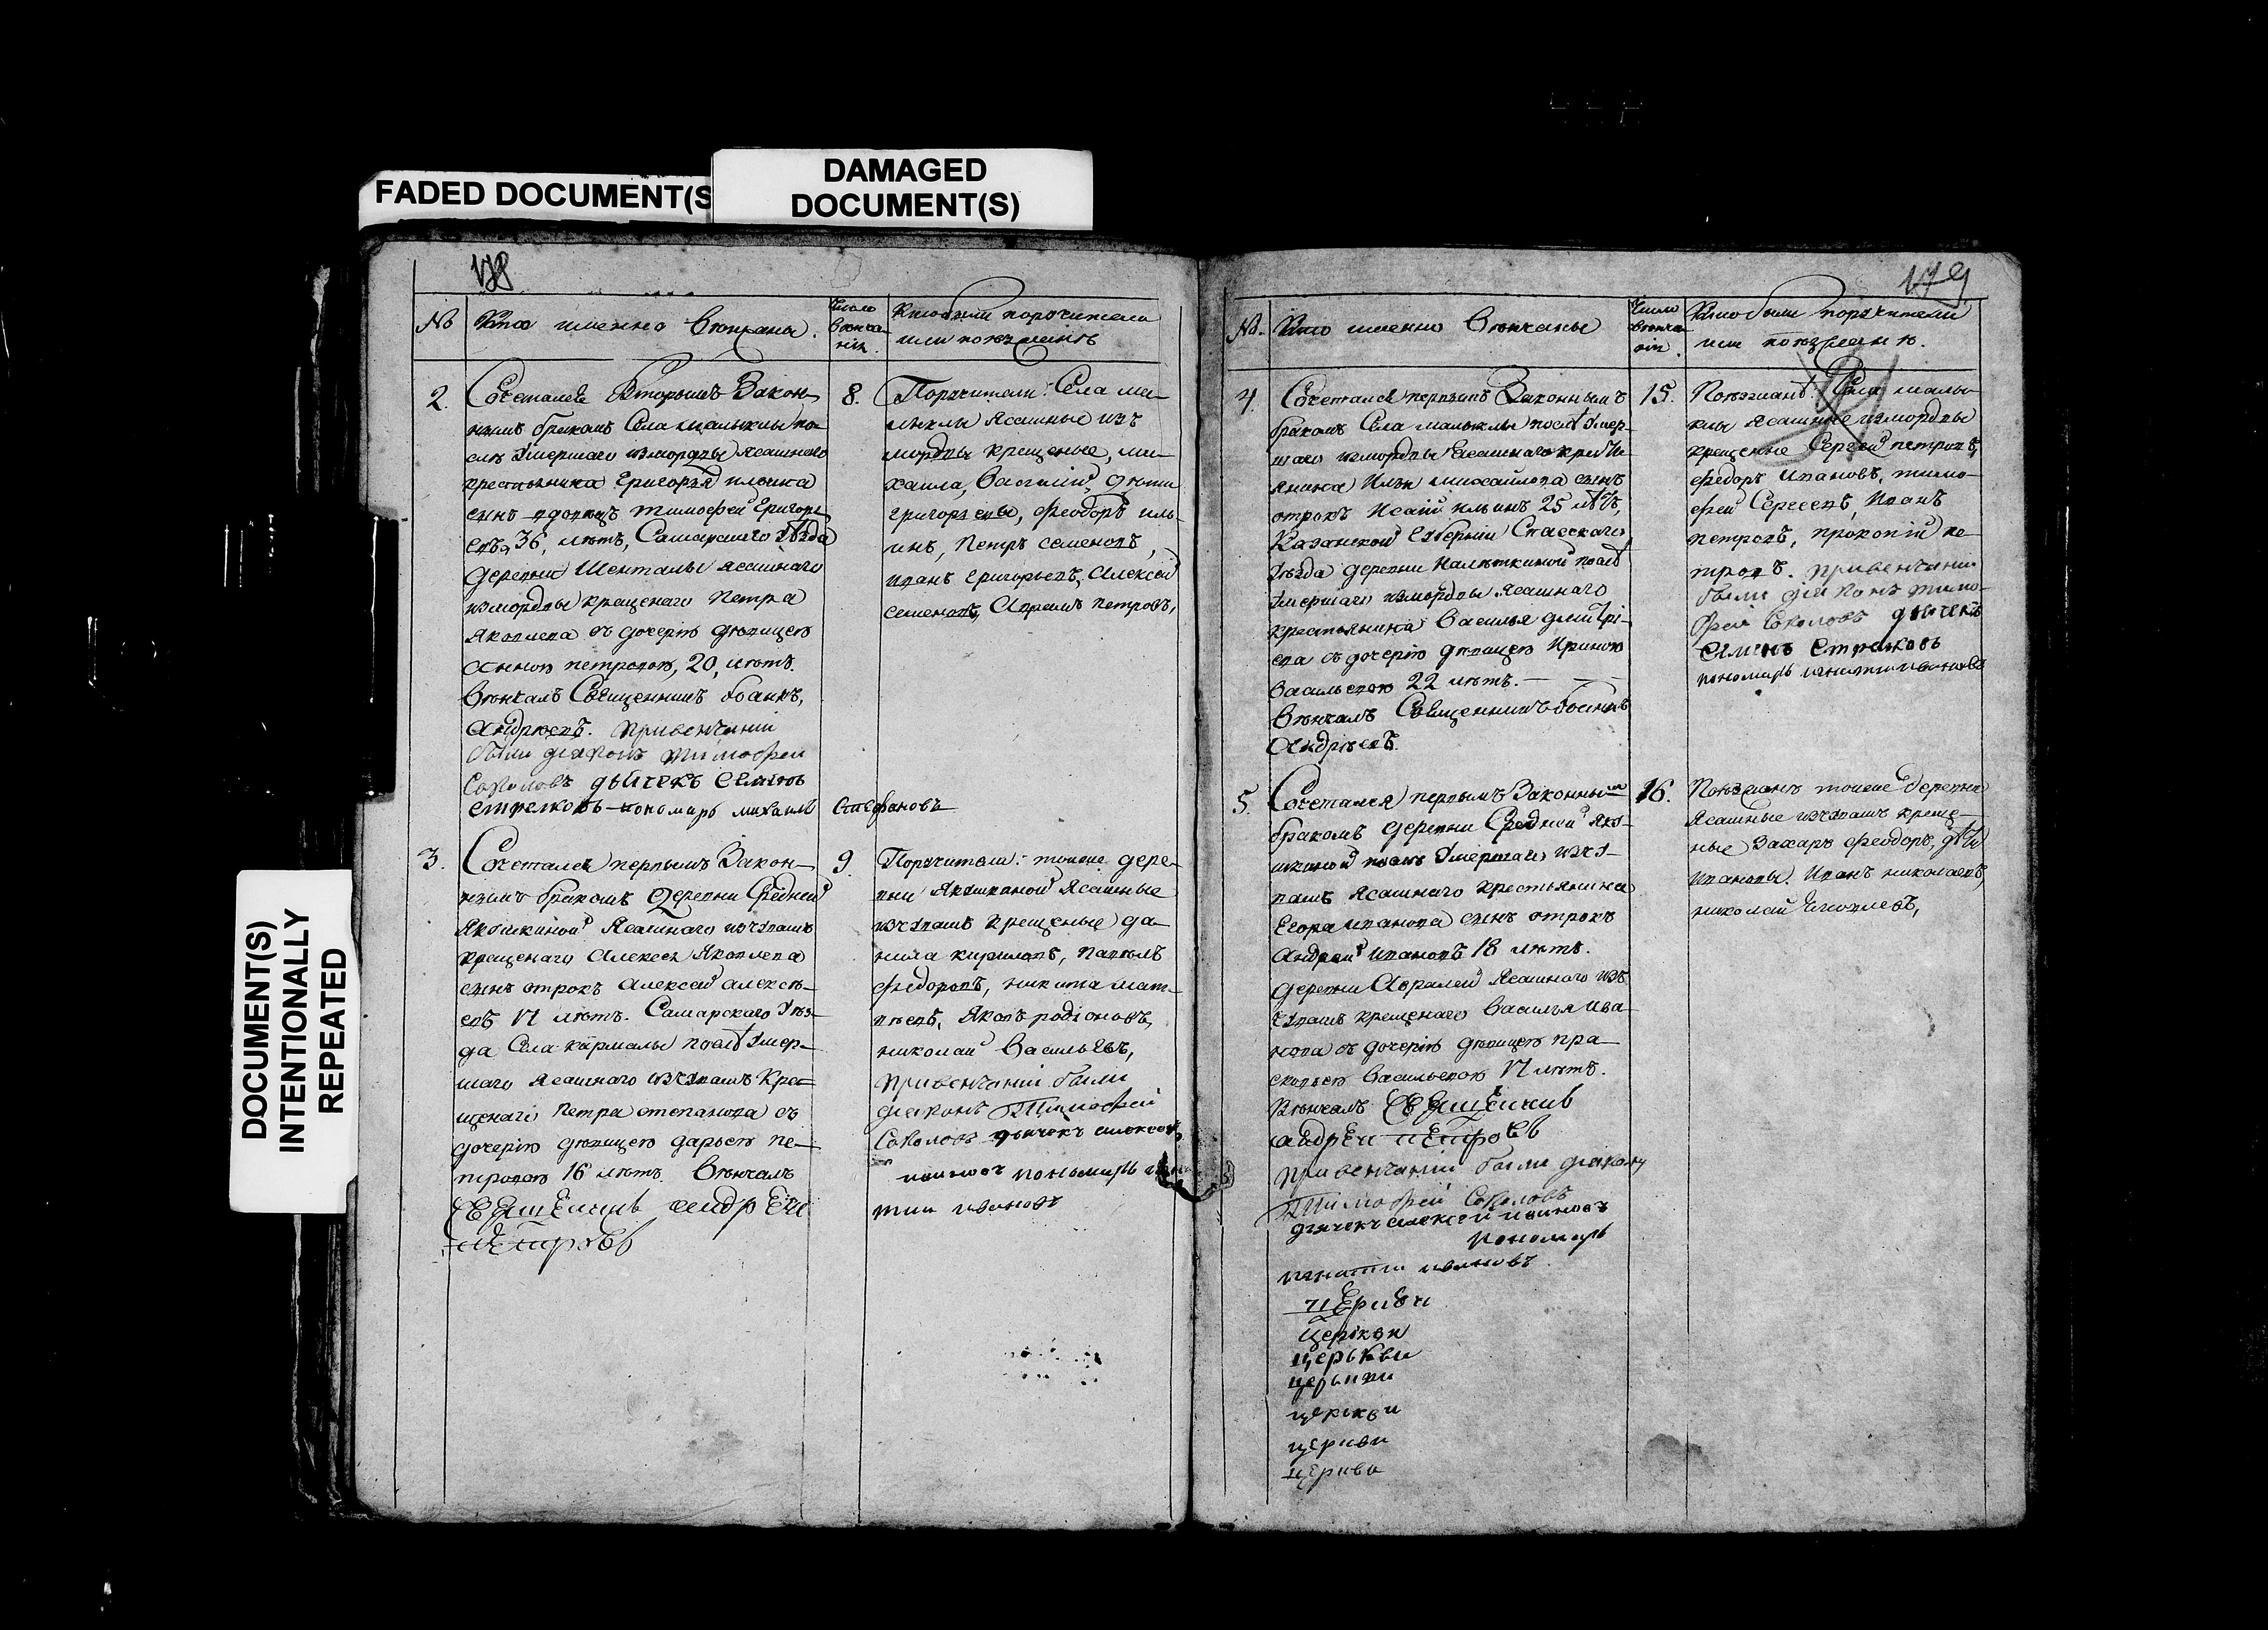 FADED DOCUMENT(S
DAMAGED
DOCUMENT(S)
DOCUMENT(S)
INTENTIONALLY
REPEATED
178
№ Кто именно венчаны. Число венча-нія. Кто были поручители
или поезжанѣ
2. Сочетался вторымъ закон-
нымъ бракомъ Села малыклы по-
слѣ умершаго измордвы ясашнаго
крестьянина Григорья
сынъ вдовецъ тимофей Григорь
евъ, 36, лѣтъ, Самарскаго уѣзда
деревни Шенталы ясашнаго
измордвы крещенаго Петра
яковлева съ дочерію дѣвицею
Анною петровою, 20, лѣтъ.
вѣнчалъ Священникъ Іоаннъ,
андрѣевъ. привенчаніи
были діяконъ тимофеи
Соколовъ дьячекъ
стрелковъ пономарь михаилъ Стефановъ
8. Поручители: Села ма-
лыклы ясашные изъ
мордвы крещеные, ми-
хаила, Василій, дѣти
григорьевы, феодоръ иль-
инъ, Петръ семеновъ,
иванъ григорьевъ, Алексей
семеновъ, Абрамъ петровъ,
3. Сочетался первымъ Закон-
нымъ бракомъ Деревни Средней
Якошкиной Ясашнаго изчувашъ
крещенаго Алексея Яковлева
сынъ отрокъ алексей алексѣ-
евъ 17 лѣтъ. Самарскаго уѣз-
да Села кармалы послѣ умер-
шаго ясашнаго изчувашъ Кре-
щенаго Петра степанова съ
дочерію дѣвицею дарьею пе-
тровою 16 лѣтъ. Вѣнчалъ
священикъ андреи
петровъ
9. Поручители: тоиже дере-
вни Якошкиной Ясашные
изчувашъ крещеные да-
нила кириловъ, павелъ
федоровъ, никита мат-
вѣевъ, Яковъ родіоновъ,
николай Васильевъ,
привенчаніи были
діяконъ Тимофей
Соколовъ дьячекъ алексей
ивановъ пономарь игна
тии ивановъ
179
№. Кто именно вѣнчаны Число венча-нія. Кто были поручители
или поезжанѣ.
4. Сочетался первымъ Законнымъ
бракомъ Села малыклы послѣ умер-
шаго измордвы Ясашнаго кресть-
янина Ильи михайлова сынъ
отрокъ Исаій ильинъ 25 лѣтъ,
Казанской Губерніи Спасскаго
уѣзда деревни Налеткиной послѣ
умершаго измордвы ясашнаго
крестьянина Василья дмитрі-
ева съ дочерію дѣвицею Ириною
Васильевою 22 лѣтъ.
вѣнчалъ Священникъ Іоаннъ
Андрѣевъ.
15. Поезжанѣ: Села малы-
клы Ясашные измордвы
крещеные Сергей петровъ,
федоръ Ивановъ, тимо-
фей Сергеевъ, Иванъ
петровъ, прокопій пе-
тровъ. привенчаніи
были діяконъ тимо-
фей Соколовъ дьячекъ
стрелковъ
пономарь игнатии ивановъ
5. Сочетался первымъ Законнымъ
бракомъ деревни Средней Яко-
шкиной послѣ умершаго изчу-
вашъ ясашнаго крестьянина
Егора иванова сынъ отрокъ
Андрей ивановъ 18 лѣтъ.
деревни Абралей Ясашнаго изъ
чувашъ крещенаго Василья ива-
нова съ дочерію дѣвицею пра-
сковьею Васильевою 17 лѣтъ.
Вѣнчалъ священикъ
андреи петровъ
привенчаніи были діяконъ
Тимофей Соколовъ
дьячекъ алексей ивановъ
пономарь
игнатии ивановъ
церкви
церкви
церькви
церькви
церкви
церкви
церкви
16. Поезжанѣ тоиже деревни
Ясашные изчувашъ креще-
ные Захаръ феодоръ, дѣти
Ивановы. Иванъ николаевъ,
николай Яковлевъ,